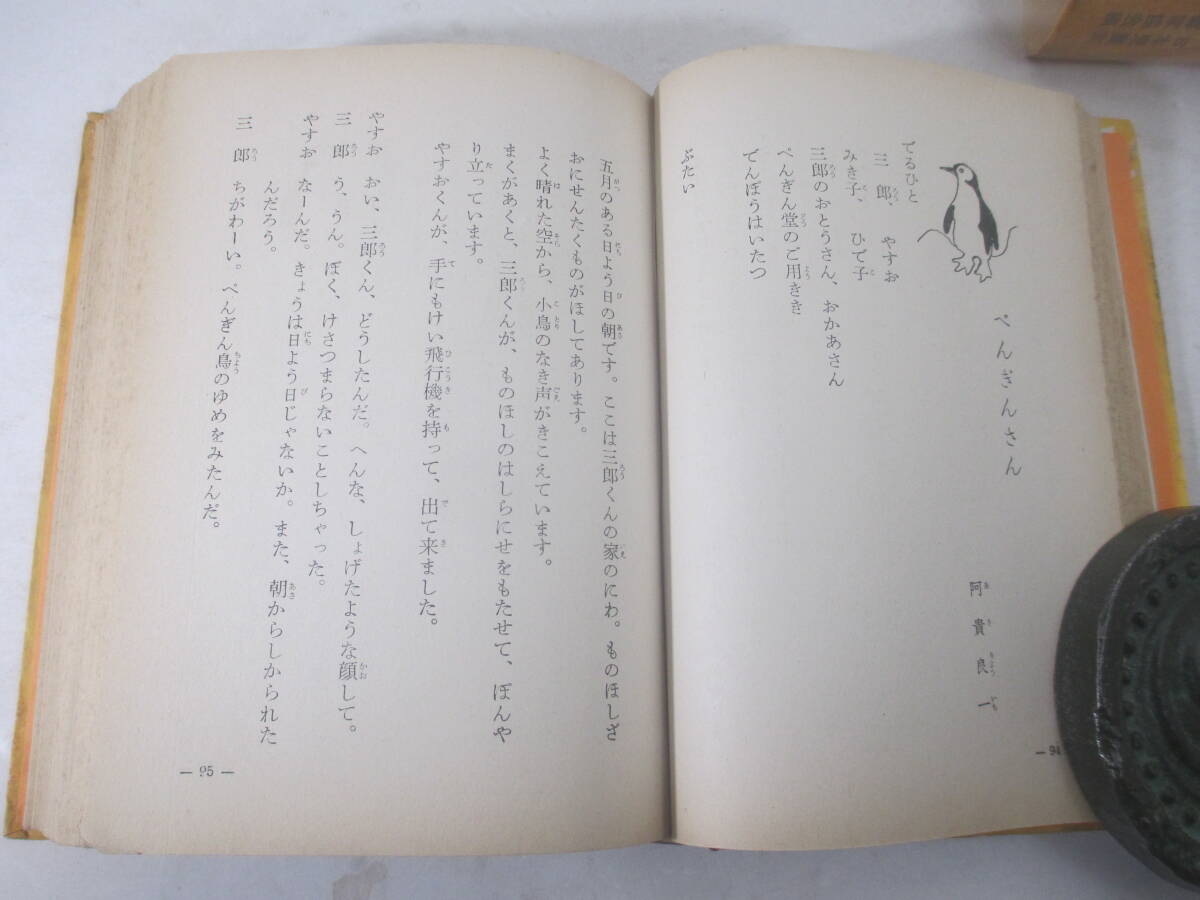 ぺんぎんさん
阿貴良一
でるひと
三郎、やすお
みき子、ひで子
三郎のおとうさん、おかあさん
ぺんぎん堂のご用きき
でんぽうはいたつ
ぶたい
— 94
五月のある日よう日の朝です。ここは三郎くんの家のにわ。ものほしざ
おにせんたくものがほしてあります。
よく晴れた空から、小鳥のなき声がきこえています。
まくがあくと、三郎くんが、ものほしのはしらにせをもたせて、ぼんや
り立っています。
やすおくんが、手にもけい飛行機を持って、出て来ました。
やすお　おい、三郎くん、どうしたんだ。へんな、しょげたような顔して。
三郎　う、うん。ぼく、けさつまらないことしちゃった。
やすお　なーんだ。きょうは日よう日じゃないか。また、朝からしかられた
んだろう。
三郎　ちがわーい。ぺんぎん鳥のゆめをみたんだ。
— 95 —